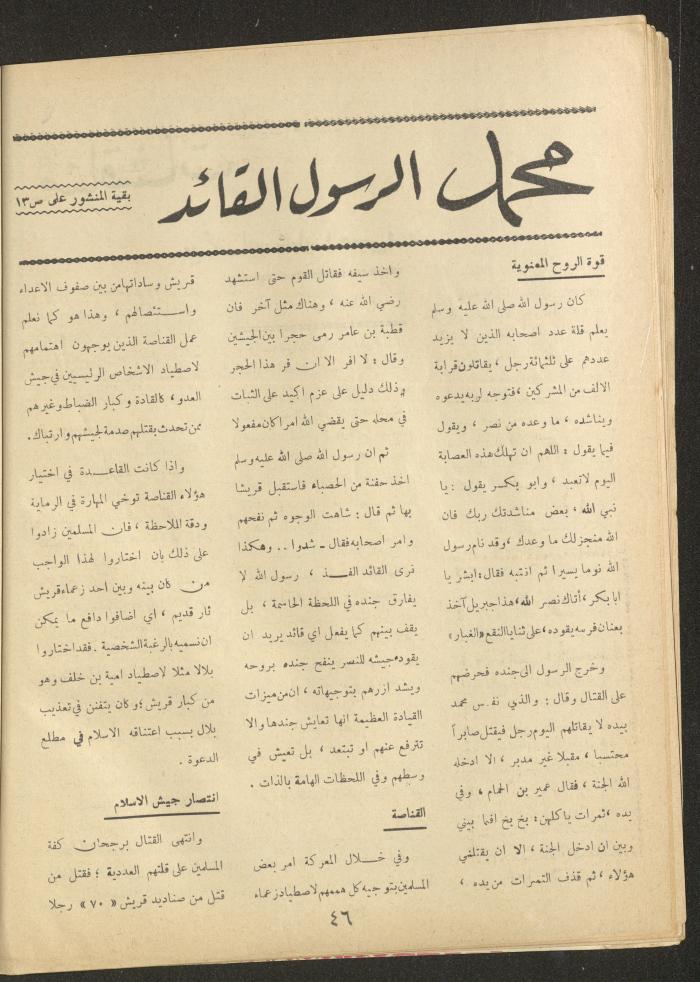 محمد الرسول القائد
بقية المنشور على ص ١٣
قوة الروح المعنوية
كان رسول الله صلى الله عليه وسلم
يعلم قلة عدد اصحابه الذين لا يزيد
عددهم على ثلثمائة رجل ، يقاتلون قرابة
الالف من المشركين ، فتوجه لربه يدعوه
ويناشده ، ما وعده من نصر ، ويقول
فيما يقول : اللهم ان تهلك هذه العصابة
اليوم لا تعبد ، وابو بكر يقول : يا
نبي الله ، بعض مناشدتك ربك فان
الله منجز لك ما وعدك ، وقد نام رسول
الله نوما يسيرا ثم انتبه فقال : ابشر يا
ابا بكر ، أتاك نصر الله ، هذا جبريل آخذ
بعنان فرسه يقوده ، على ثنايا النقع «الغبار»
وخرج الرسول الى جنده فحرضهم
على القتال وقال : والذي نفس محمد
بيده لا يقاتلهم اليوم رجل فيقتل صابراً
محتسبا ، مقبلا غير مدبر ، الا ادخله
الله الجنة ، فقال عمير بن الحمام ، وفي
يده ، ثمرات ياكلهن : بخ بخ افما بيني
وبين ان ادخل الجنة ، الا ان يقتلني
هؤلاء ، ثم قذف التمرات من يده ،
واخذ سيفه فقاتل القوم حتى استشهد
رضي الله عنه ، وهناك مثل آخر فان
قطبة بن عامر رمى حجرا بين الجيشين
وقال : لا افر الا ان فر هذا الحجر
وذلك دليل على عزم اكيد على الثبات
في محله حتى يقضي الله امرا كان مفعولا
ثم ان رسول الله صلى الله عليه وسلم
اخذ حفنة من الحصباء فاستقبل قريشا
بها ثم قال : شاهت الوجوه ثم نفحهم
وامر اصحابه فقال ـ شدوا .. وهكذا
نرى القائد الفـــذ ، رسول الله لا
يفارق جنده في اللحظة الحاسمة ، بل
يقف بينهم كما يفعل اي قائد يريد ان
يقود جيشه للنصر ينفح جنده بروحه
ويشد ازرهم بتوجيهاته ، ان من ميزات
القيادة العظيمة انها تعايش جندها والا
تترفع عنهم او تبتعد ، بل تعيش في
وسطهم وفي اللحظات الهامة بالذات .
القناصة
وفي خـــلال المعركة امر بعض
المسلمين بتوجيه كل هممهم لاصطياد زعماء
قريش وساداتها من بين صفوف الاعداء
واستئصالهم ، وهذا هو كما نعلم
عمل القناصة الذين يوجهون اهتمامهم
لاصطياد الاشخاص الرئيسيين في جيش
العدو ، كالقادة وكبار الضباط وغيرهم
ممن تحدث بقتلهم صدمة لجيشهم وارتباك .
واذا كانت القاعـــدة في اختيار
هؤلاء القناصة توخي المهارة في الرماية
ودقة الملاحظة ، فان المسلمين زادوا
على ذلك بان اختاروا لهذا الواجب
من كان بينه وبين احد زعماء قريش
ثار قديم ، اي اضافوا دافع ما يمكن
ان نسميه بالرغبة الشخصية . فقد اختاروا
بلالا مثلا لاصطياد امية بن خلف وهو
من كبار قريش ، وكان يتفنن في تعذيب
بلال بسبب اعتناقه الاسلام في مطلع
الدعوة .
انتصار جيش الاسلام
وانتهى القتال برجحان كفة
المسلمين على قلتهم العددية ؛ فقتل من
قتل من صناديد قريش « ٧٠ » رجلا
٤٦